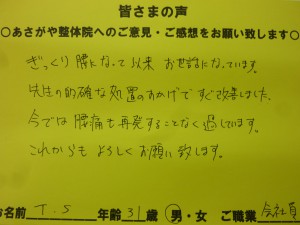 皆さまの声
○あさがや整体院へのご意見・ご感想をお願い致します○
ぎっくり腰になって以来 お世話になっています。
先生の的確な処置のおかげですぐ改善しました。
今では腰痛も再発することなく過しています。
これからも よろしくお願い致します。
お名前 T.S 年齢 31 歳 男・女 ご職業 会社員